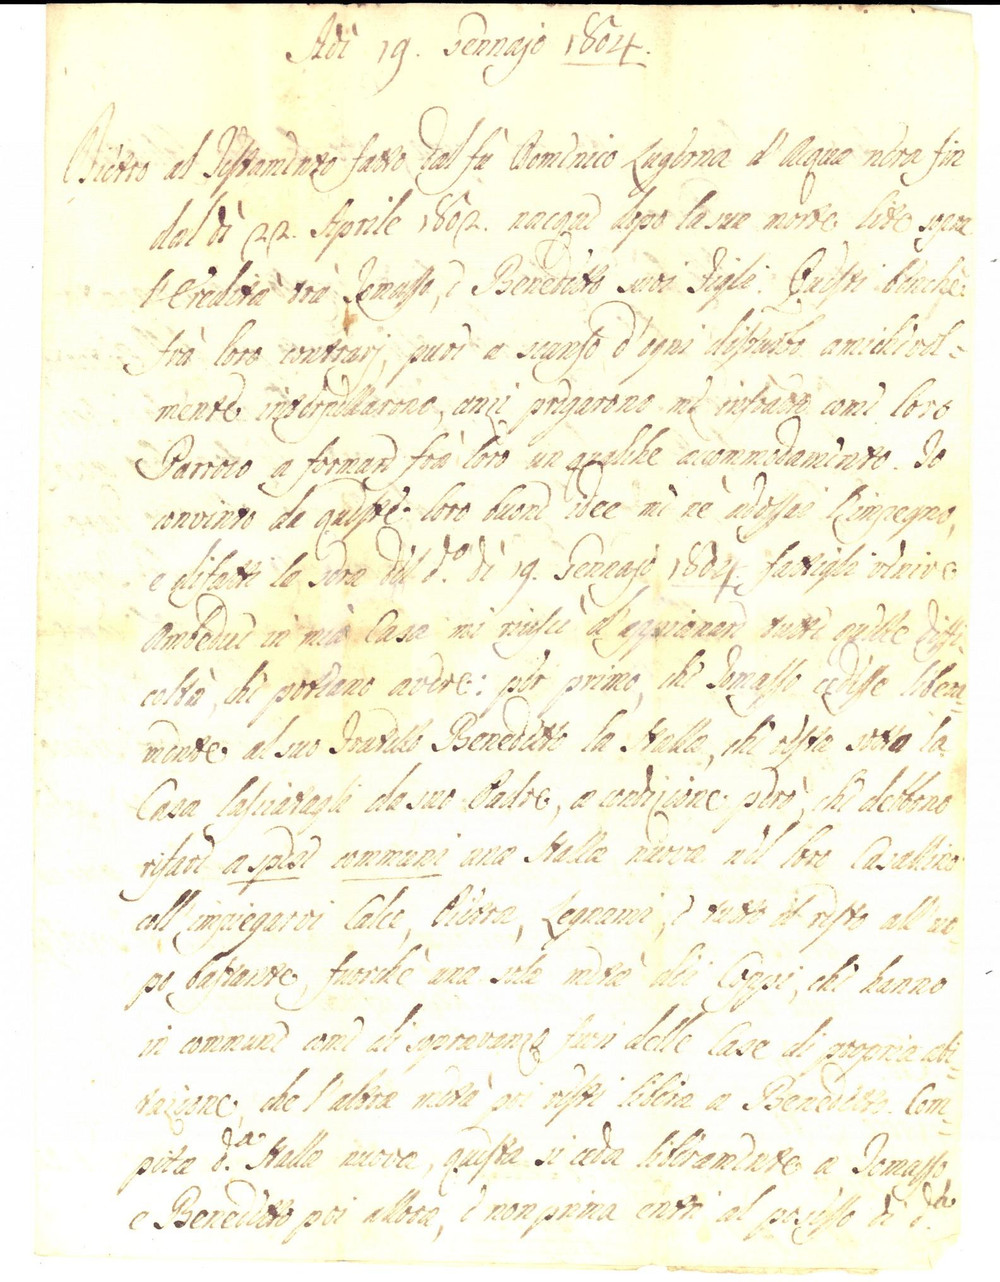 Adì 19. Gennajo 1804.
Dietro al Testamento fatto dal fù Domenico Luginna d'Aqua nera fin
dal dì 22. Aprile 1802. nacque dopo la sua morte lite sopra
l'Eredità trà Tomasso, e Benedetto suoi Figli. Questi benchè
trà loro contrarj, pure a scanso d'ogni disturbo amichevol-
mente interpellarono, anzi pregarono me infratto come loro
Parroco a formare frà loro un qualche accommodamento. Io
convinto da queste loro buone idee mi ne adossai l'impegno,
e difatti la sera del d.° dì 19. Gennajo 1804. fattigli venire
Ambedue in mia Casa mi riuscì d'appianare tutte quelle diffi-
coltà, che potevano avere: per primo, che Tomasso cedesse libera-
mente al suo Fratello Benedetto la stalla, che resta sotto la
Casa lasciatagli da suo Padre, a condizione però, che debbono
rifare a spese communi una stalla nuova nel loro Casallino
coll'impiegarvi Calce, Pietra, Legnami, e tutto il resto all'uo-
po bastante, fuorchè una sola metà dei Coppi, che hanno
in commune come di sopravanzo fuori delle Case di propria abi-
tazione, che l'altra metà poi resti libera a Benedetto. Com-
pita d.ª stalla nuova, questa si ceda liberamente a Tomasso,
e Benedetto poi allora, e non prima entri al possesso di d.ª